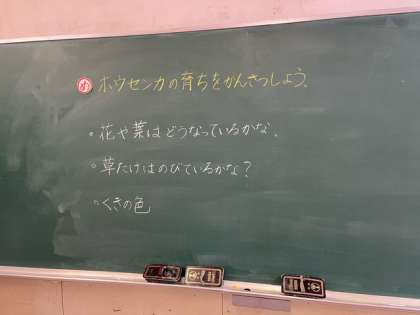 め ホウセンカの育ちをかんさつしよう。
・花や葉はどうなっているかな。
・草たけはのびているかな?
・くきの色